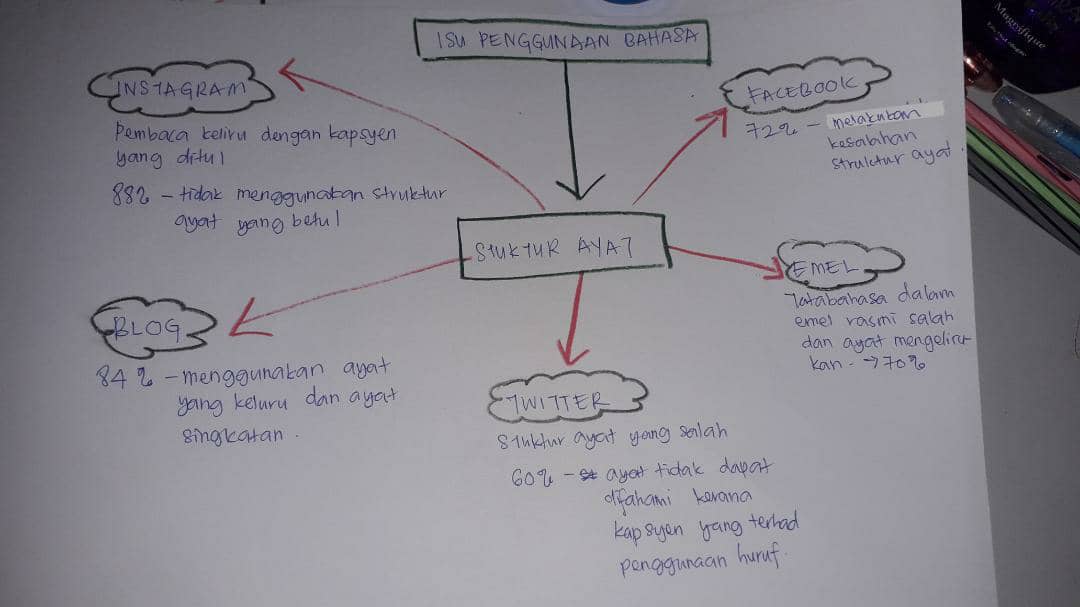 ISU PENGGUNAAN BAHASA
INSTAGRAM
Pembaca keliru dengan kapsyen
yang ditul
88% - tidak menggunakan struktur
ayat yang betul
FACEBOOK
72% - melakukan
kesalahan
struktur ayat.
STUKTUR AYAT
EMEL
Tatabahasa dalam
emel rasmi salah
dan ayat mengeliru
kan. → 70%
BLOG
84% - menggunakan ayat
yang keluru dan ayat
singkatan.
TWITTER
Stuktur ayat yang salah
60% - ayat tidak dapat
difahami kerana
kapsyen yang terhad
penggunaan huruf.
Magnifique